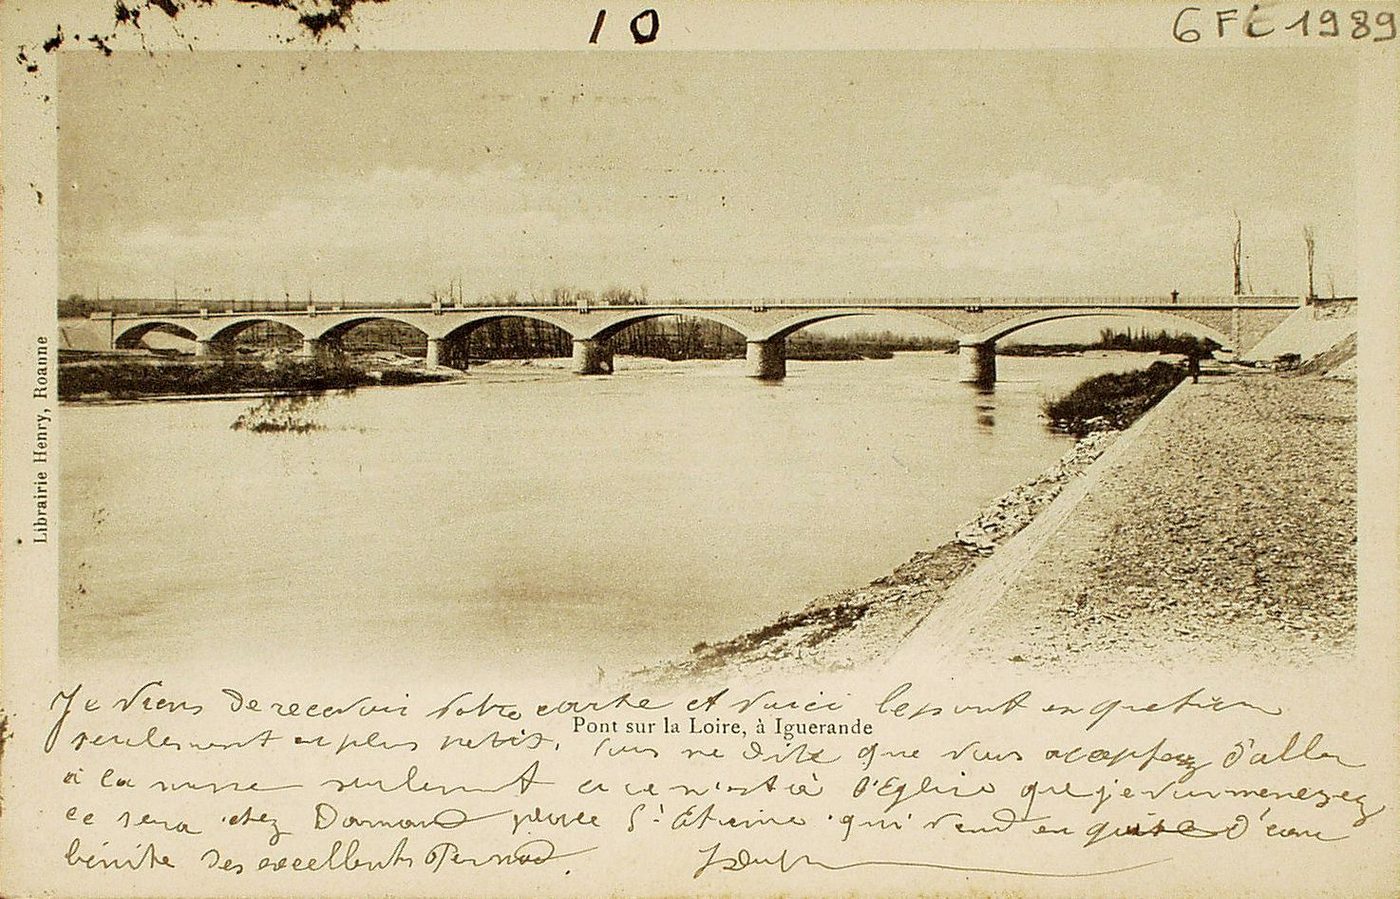 10
6 FE 1989
Librairie Henry, Roanne
Je viens de recevoir votre carte et voici le pont en question
Pont sur la Loire, à Iguerande
seulement en plus petit, vous me dite que vous acceptez d'aller
à la messe seulement ce n'est à l'Eglise que je vous menerez
ce sera chez Dornand place St Etienne qui vend en guise d'eau
bénite des excellents Pernod.